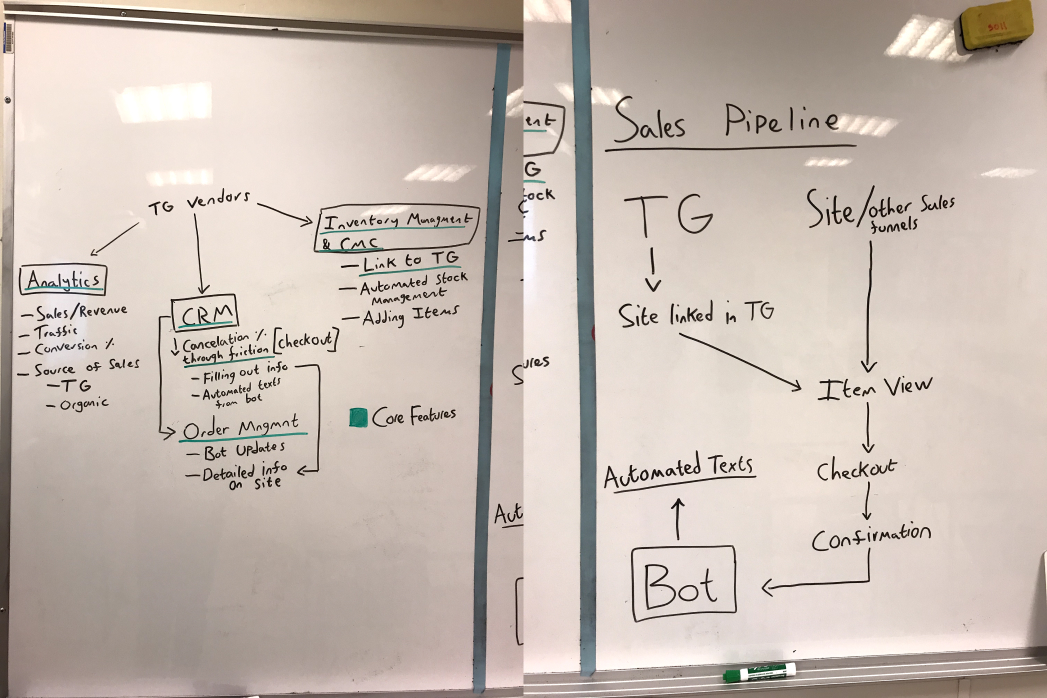 TG Vendors
Analytics
— Sales/Revenue
— Traffic
— Conversion %
— Source of Sales
— TG
— Organic
CRM
↓ Cancelation %
through friction [Checkout]
— Filling out info
— Automated texts
from bot
Order Mngmnt
— Bot Updates
— Detailed info
on site
Inventory Managment
& CMC
— Link to TG
— Automated Stock
Management
— Adding Items
Core Features
Aut
ent
G
tock
ms
ures
Sales Pipeline
TG
Site linked in TG
Site/other Sales
funnels
Item View
Checkout
Confirmation
Bot
Automated Texts